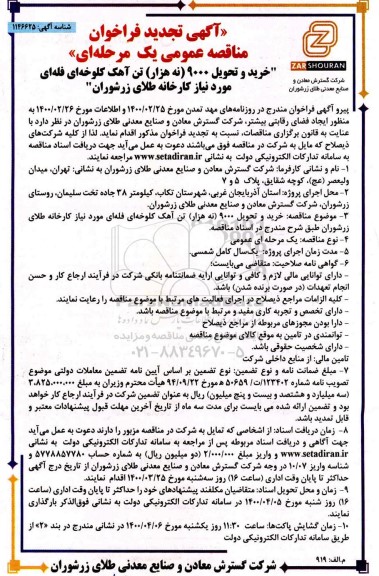 شناسه آگهی: ۱۱۴۶۶۲۵
«آگهی تجدید فراخوان
مناقصه عمومی یک مرحله‌ای»
"خرید و تحویل ۹۰۰۰ (نه هزار) تن آهک کلوخه‌ای فله‌ای
مورد نیاز کارخانه طلای زرشوران"
ZARSHOURAN
شرکت گسترش معادن و
صنایع معدنی طلای زرشوران
پیرو آگهی فراخوان مندرج در روزنامه‌های مهد تمدن مورخ ۱۴۰۰/۰۲/۲۵ و اطلاعات مورخ ۱۴۰۰/۰۲/۲۶ به
منظور ایجاد فضای رقابتی بیشتر، شرکت گسترش معادن و صنایع معدنی طلای زرشوران در نظر دارد با
عنایت به قانون برگزاری مناقصات، نسبت به تجدید فراخوان مذکور اقدام نماید. لذا از کلیه شرکت‌های
ذیصلاح که مایل به شرکت در مناقصه فوق می‌باشند دعوت به عمل می‌آید جهت دریافت اسناد مناقصه
به سامانه تدارکات الکترونیکی دولت به نشانی www.setadiran.ir مراجعه نمایند.
۱- نام و نشانی کارفرما: شرکت گسترش معادن و صنایع معدنی طلای زرشوران به نشانی: تهران، میدان
ولیعصر (عج)، کوچه شقایق، پلاک ۵ و ۷
۲- محل اجرای پروژه: استان آذربایجان غربی، شهرستان تکاب، کیلومتر ۳۸ جاده تخت سلیمان، روستای
زرشوران، شرکت گسترش معادن و صنایع معدنی طلای زرشوران.
۳- موضوع مناقصه: خرید و تحویل ۹۰۰۰ (نه هزار) تن آهک کلوخه‌ای فله‌ای مورد نیاز کارخانه طلای
زرشوران طبق شرح مندرج در اسناد مناقصه.
۴- نوع مناقصه: یک مرحله ای عمومی
۵- مدت زمان اجرای پروژه: یک‌سال کامل شمسی.
۶- گواهی نامه صلاحیت: متقاضی می‌بایست؛
- دارای توانایی مالی لازم و کافی و توانایی ارایه ضمانتنامه بانکی شرکت در فرآیند ارجاع کار و حسن
انجام تعهدات (در صورت برنده شدن) باشد.
- کلیه الزامات مراجع ذیصلاح در اجرای فعالیت های مرتبط با موضوع مناقصه را رعایت نمایند.
- دارای تخصص و تجربه کاری مفید و مرتبط با موضوع مناقصه باشد.
- دارا بودن مجوزهای مربوطه از مراجع ذیصلاح
- توانمندی در تامین به موقع کالای موضوع مناقصه
- دارای شخصیت حقوقی باشد.
تامین مالی: از منابع داخلی شرکت
۰۲۱-۸۸۳۴۹۶۷۰-۵
۷- مبلغ ضمانت نامه و نوع تضمین: نوع تضمین بر اساس آیین نامه تضمین معاملات دولتی موضوع
تصویب نامه شماره ۱۲۳۴۰۲/ت ۵۰۶۵۹ ه مورخ ۹۴/۰۹/۲۲ هیأت محترم وزیران به مبلغ ۳,۸۲۵,۰۰۰,۰۰۰
(سه میلیارد و هشتصد و بیست و پنج میلیون) ریال به عنوان تضمین شرکت در فرآیند ارجاع کار خواهد
بود و تضمین ارائه شده می بایست برای مدت سه ماه از تاریخ آخرین مهلت قبول پیشنهادات معتبر و
قابل تمدید باشد.
۸- زمان دریافت اسناد: از اشخاصی که تمایل به شرکت در مناقصه مزبور را دارند دعوت به عمل می‌آید
جهت آگاهی و دریافت اسناد مربوطه پس از مراجعه به سامانه تدارکات الکترونیکی دولت به نشانی
www.setadiran.ir و واریز مبلغ ۲/۰۰۰/۰۰۰ (دو میلیون ریال) به شماره حساب ۵۷۷۸۸۵۷۷۸۰ و
شناسه واریز ۱۰/۰۷ در وجه شرکت گسترش معادن و صنایع معدنی طلای زرشوران از تاریخ درج آگهی
حداکثر تا پایان وقت اداری (ساعت ۱۶) روز سه‌شنبه مورخ ۱۴۰۰/۰۳/۲۵ اقدام نمایند.
۹- زمان و محل تحویل اسناد: متقاضیان مکلفند پیشنهادهای خود را حداکثر تا پایان وقت اداری (ساعت
۱۶) روز شنبه مورخ ۱۴۰۰/۰۴/۰۵ در سامانه تدارکات الکترونیکی دولت به نشانی فوق‌الذکر بارگذاری
نمایند.
۱۰- زمان گشایش پاکت‌ها: ساعت ۱۱:۳۰ روز یکشنبه مورخ ۱۴۰۰/۰۴/۰۶ در نشانی مندرج در بند «۲» از
طریق سامانه تدارکات الکترونیکی دولت
م.الف: ۹۱۹
شرکت گسترش معادن و صنایع معدنی طلای زرشوران